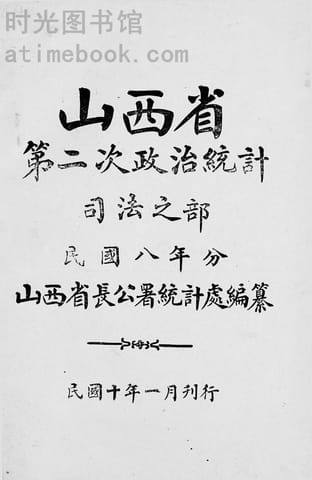 时光图书馆
atimebook.com
山西省
第二次政治統計
司法之部
民國八年分
山西省長公署統計處編纂
民國十年一月刊行